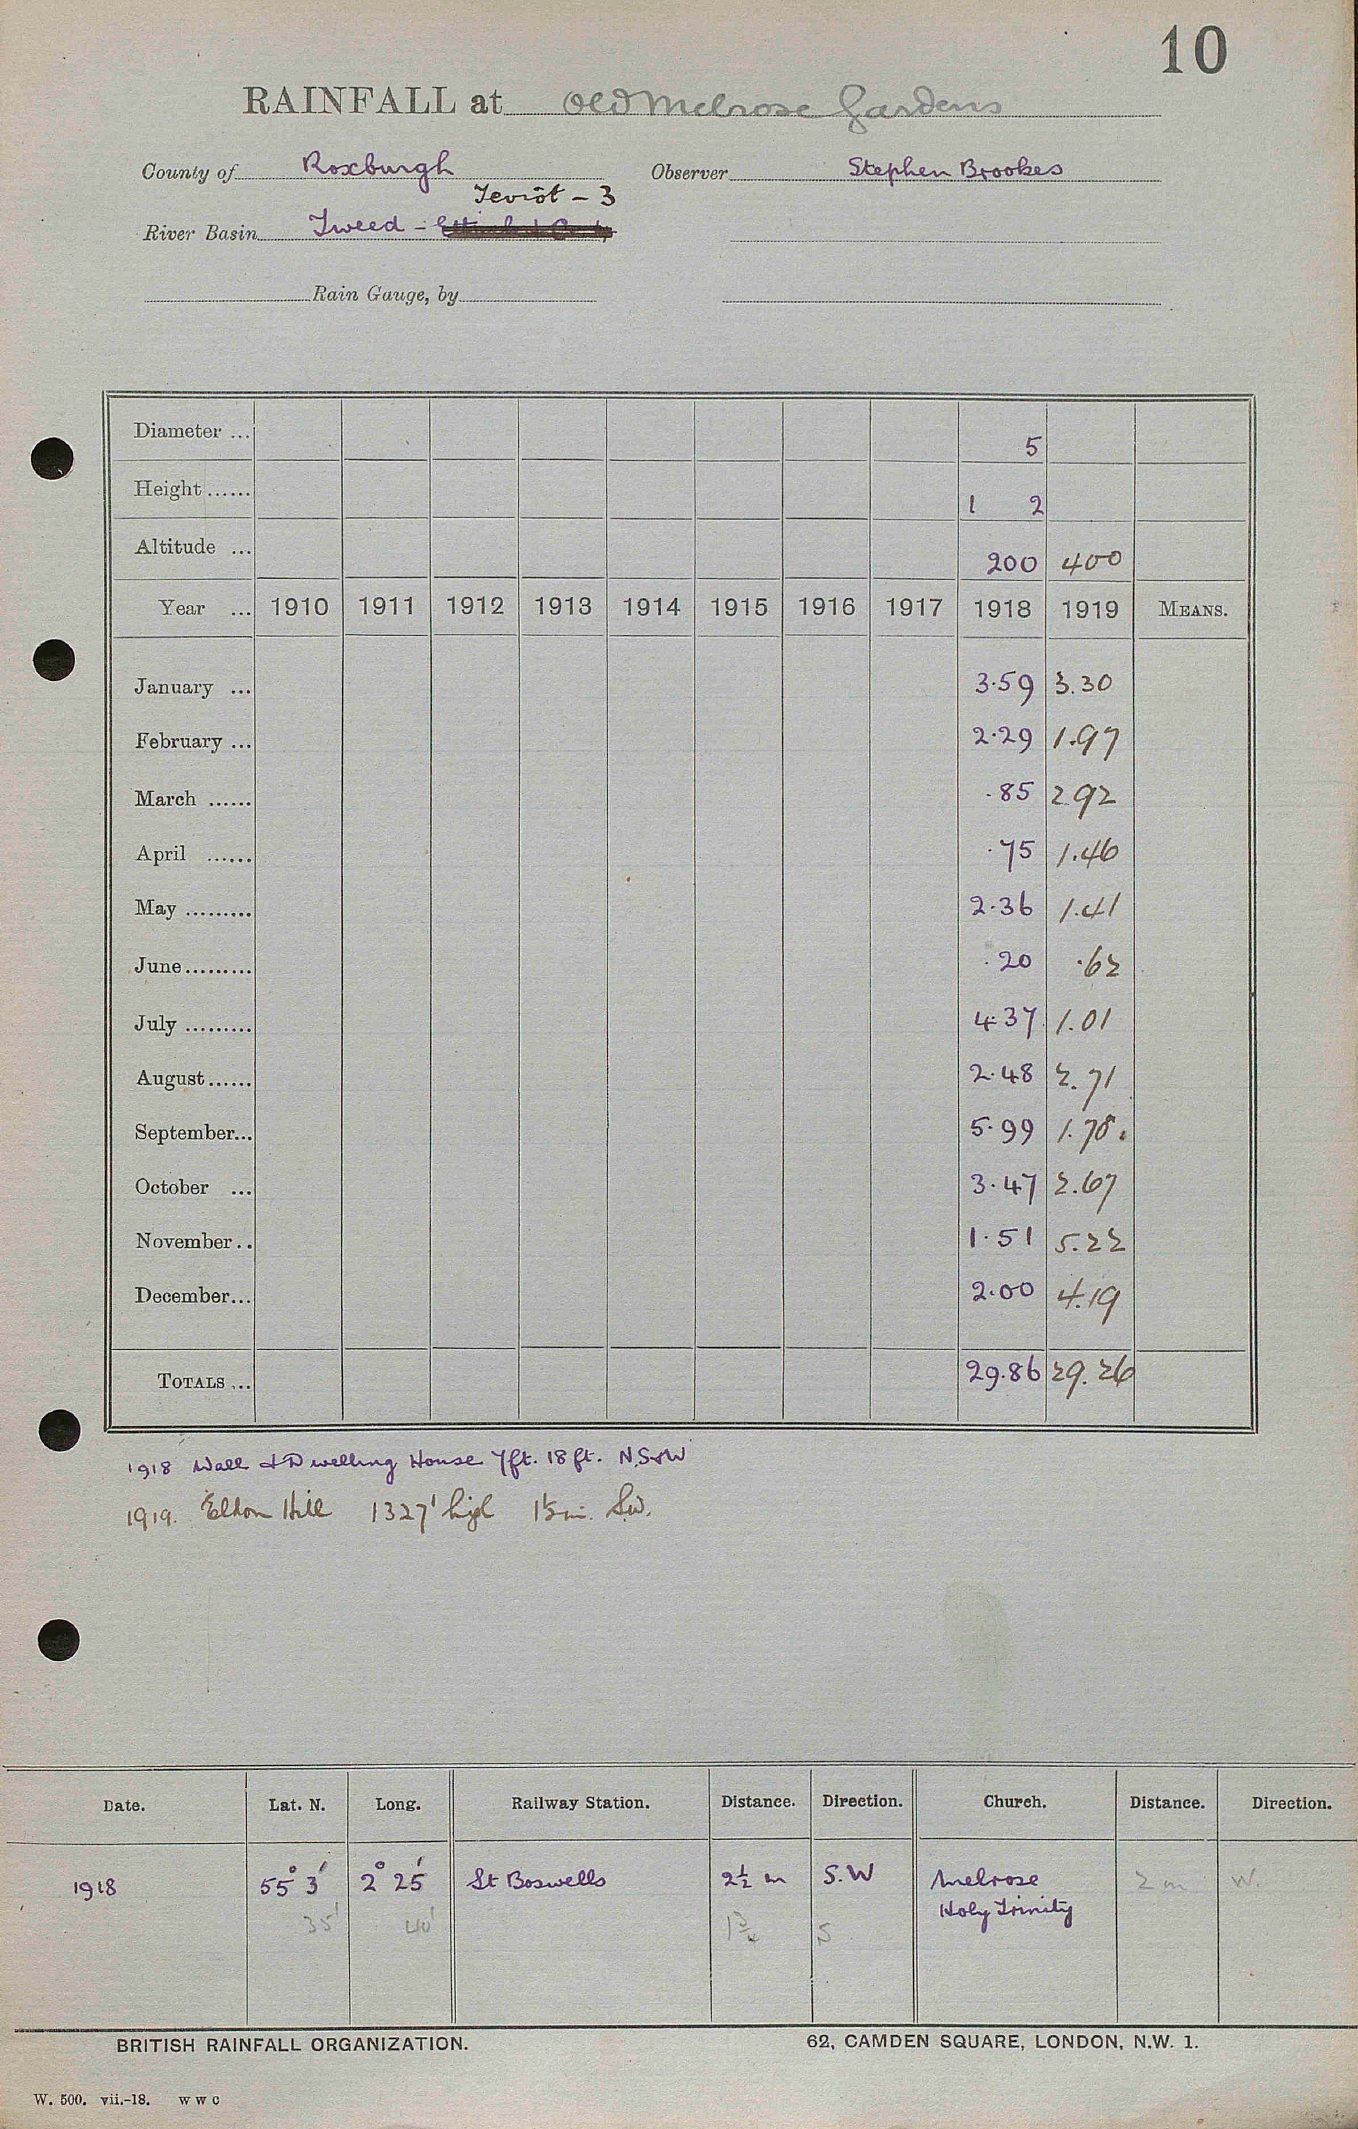 10
RAINFALL at Old Melrose Gardens
County of Roxburgh Observer Stephen Brookes
Teviot - 3
River Basin Tweed -
Rain Gauge, by
Diameter ... 5
Height...... 1 2
Altitude ... 200 400
Year ... 1910 1911 1912 1913 1914 1915 1916 1917 1918 1919 MEANS.
January ... 3.59 3.30
February ... 2.29 1.97
March ...... .85 2.92
April ...... .75 1.46
May ......... 2.36 1.41
June......... .20 .62
July ......... 4.37 1.01
August...... 2.48 2.71
September... 5.99 1.78.
October ... 3.47 2.67
November.. 1.51 5.22
December... 2.00 4.19
TOTALS ... 29.86 29.26
1918 Wall & Dwelling House 7ft. 18ft. N,S&W
1919. Eildon Hill 1327' high SW.
Date. Lat. N. Long. Railway Station. Distance. Direction. Church. Distance. Direction.
1918 55° 3' 2° 25' St Boswells 2½ m S.W Melrose 2 m W.
Holy Trinity
35' 40' 1¾ S
BRITISH RAINFALL ORGANIZATION. 62, CAMDEN SQUARE, LONDON, N.W. 1.
W. 500. vii.-18. w w c